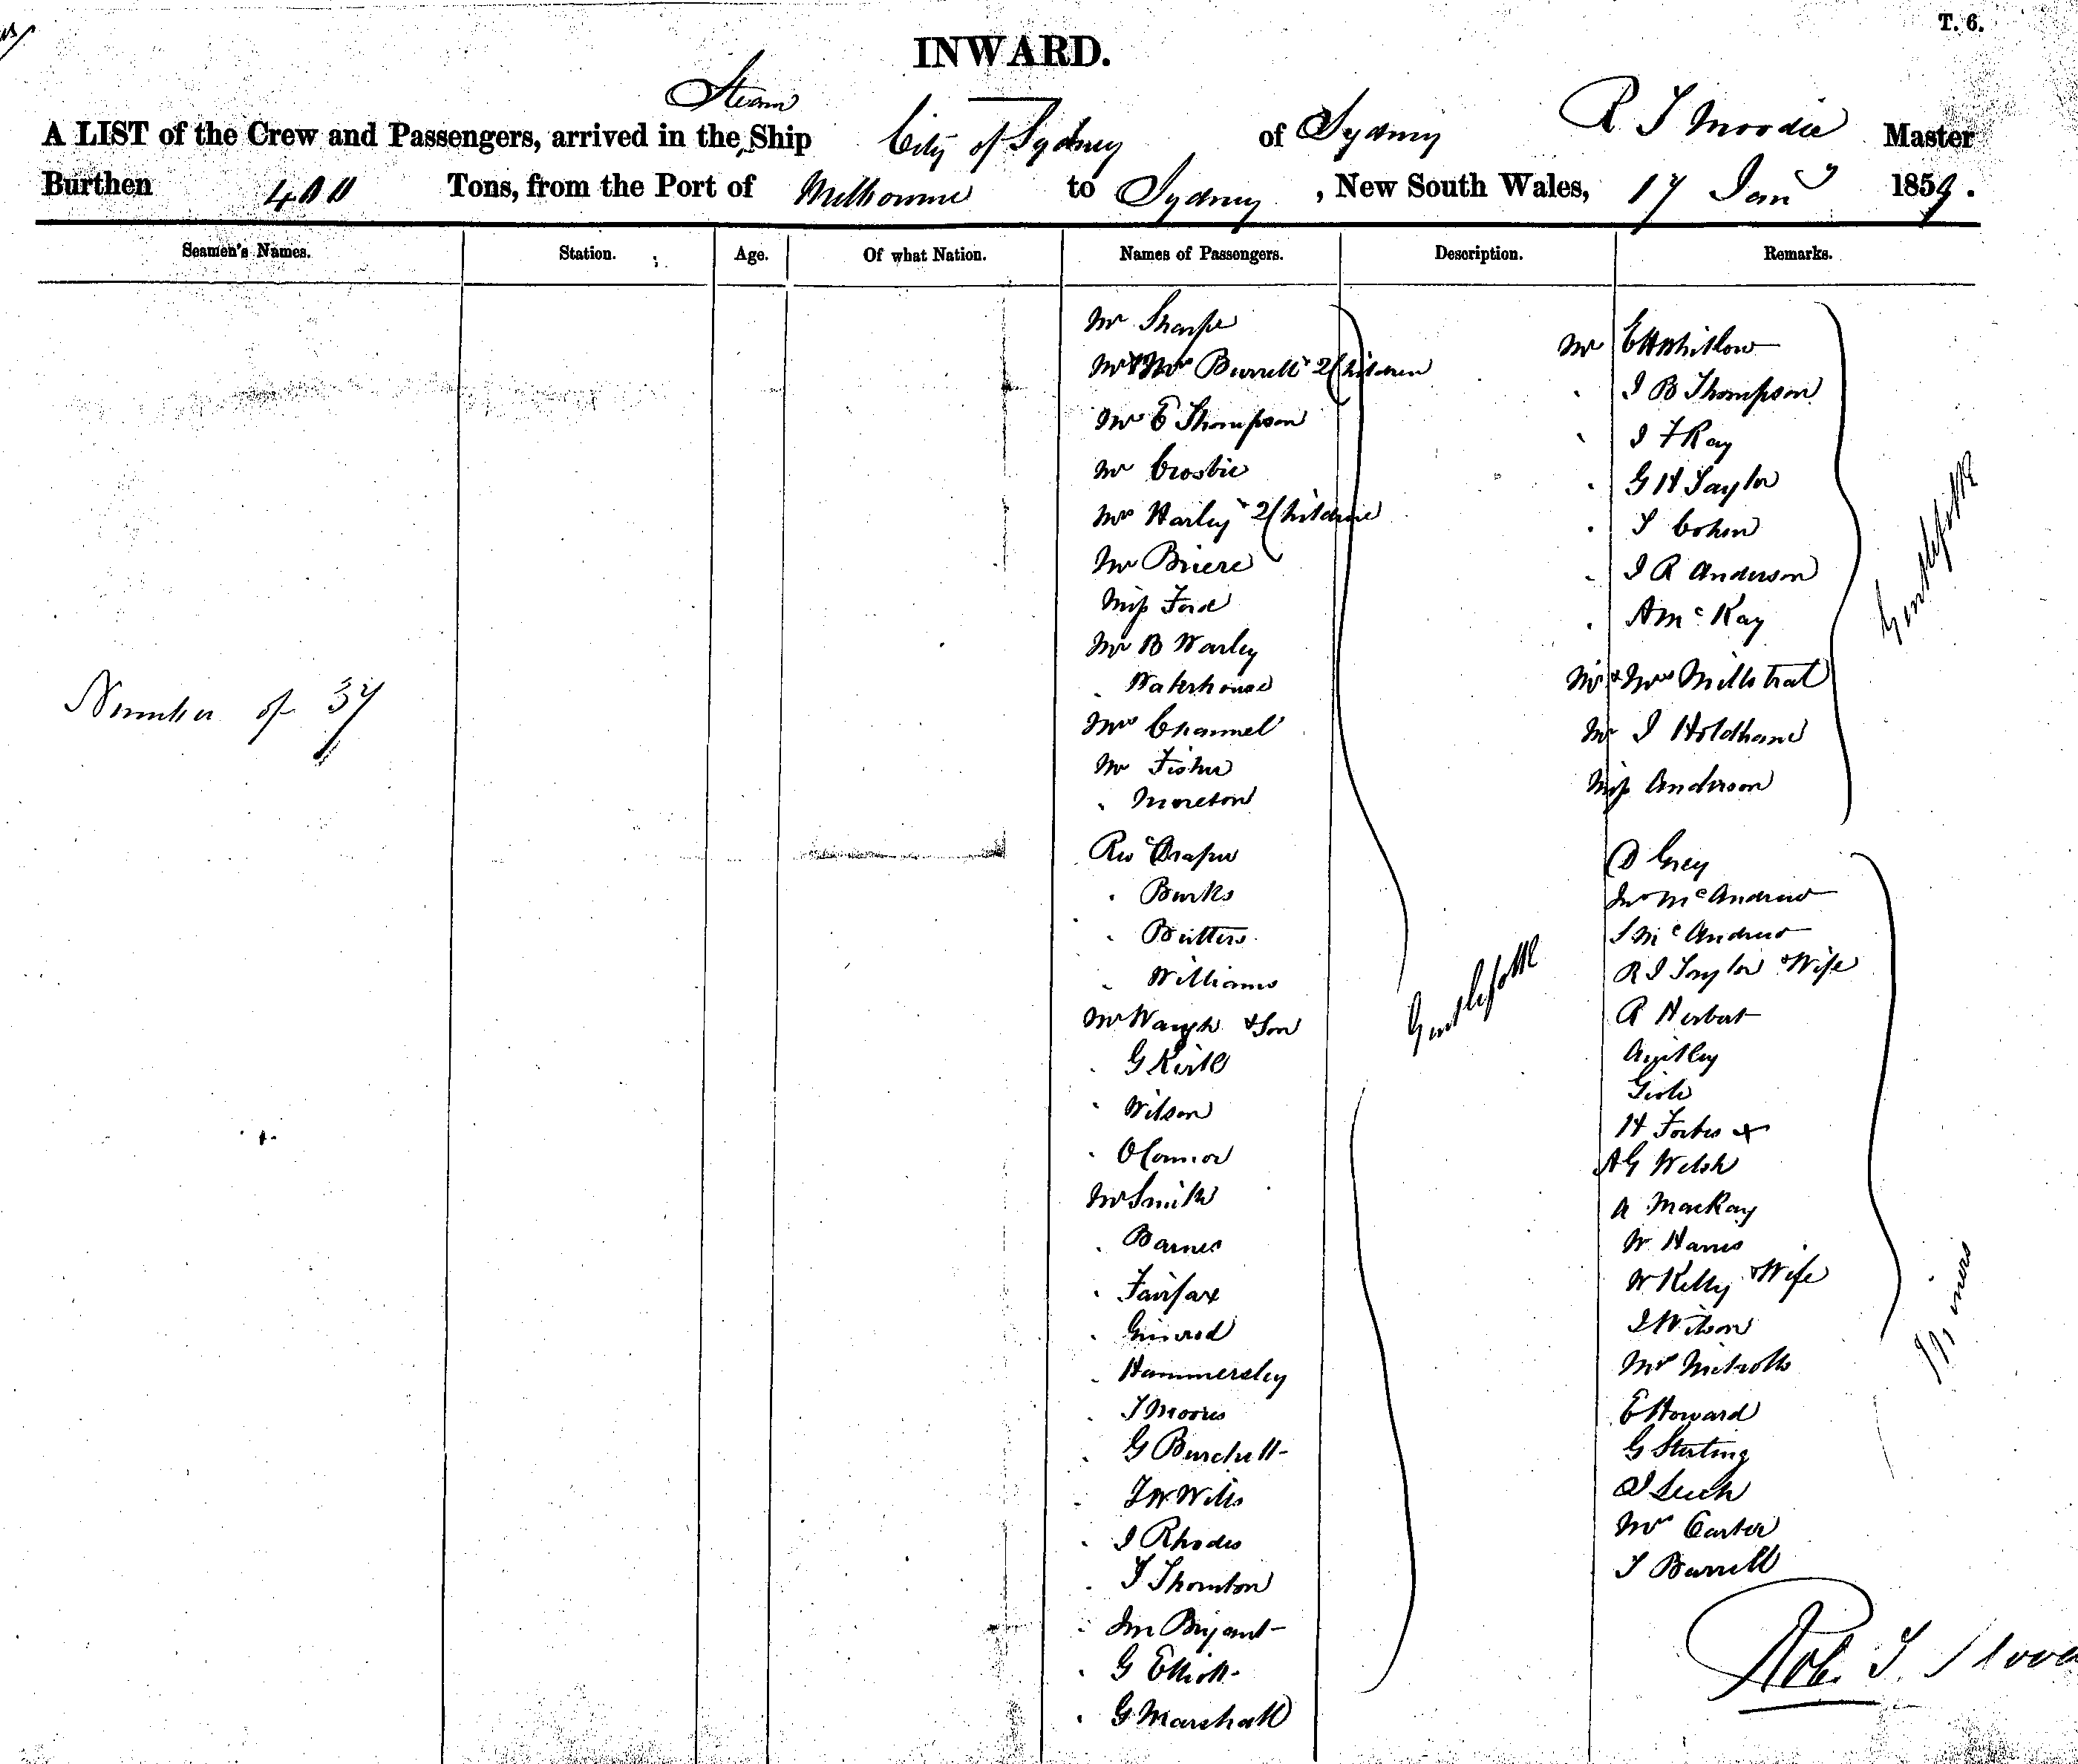 T. 6.
INWARD.
Steam
A LIST of the Crew and Passengers, arrived in the Ship City of Sydney of Sydney R T Moodie Master
Burthen 400 Tons, from the Port of Melbourne to Sydney, New South Wales, 17 Jany 1859.
Seamen's Names. Station. Age. Of what Nation. Names of Passengers. Description. Remarks.
Number of 37
Mr Sharpe
Mr & Mrs Burrell & 2 Children
Mr E Thompson
Mr Crosbie
Mrs Harley & 2 Children
Mr Briere
Miss Ford
Mr B Warley
" Waterhouse
Mrs Channel
Mr Fisher
" Moreton
Rev Draper
" Burks
" Butters
" Williams
Mr Waugh & Son
" G Kirk
" Wilson
" OConnor
Mr Smith
" Barnes
" Fairfax
"
" Hammersley
" T Moores
" G Burchett
" J W Wills
" J Rhodes
" T Thornton
" Jno Bryant
" G Elliott
" G Marshall
Gentlefolk
Mr E H Whitlow
" J B Thompson
" J F Ray
" G H Taylor
" S Cohen
" J R Anderson
" A McKay
Mr & Mrs Millstrat
Mr J Holdhand
Miss Anderson
Gentlefolk
D Grey
Jno McAndrew
S McAndrew
R J Taylor & Wife
R Herbert
H Forbes
A G Welsh
A MacKay
W Harris
W Kelly & Wife
J Wilson
Mrs Nicholls
E Howard
G Sterling
J Leech
Mrs Carter
T Burrell
Miners
Rob. T. Mood